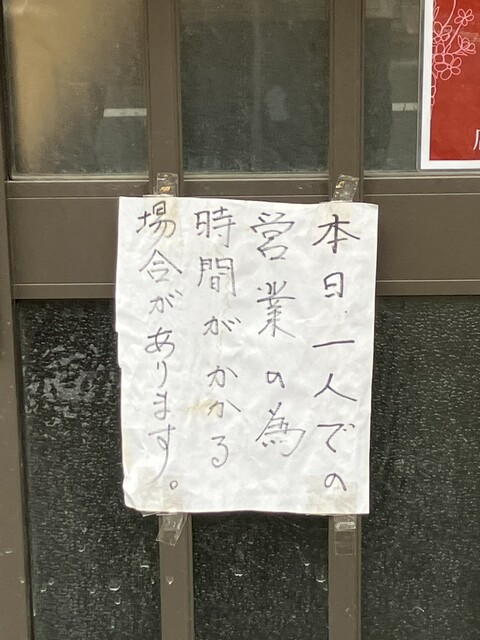 本日一人での
営業の為
時間がかかる
場合があります。